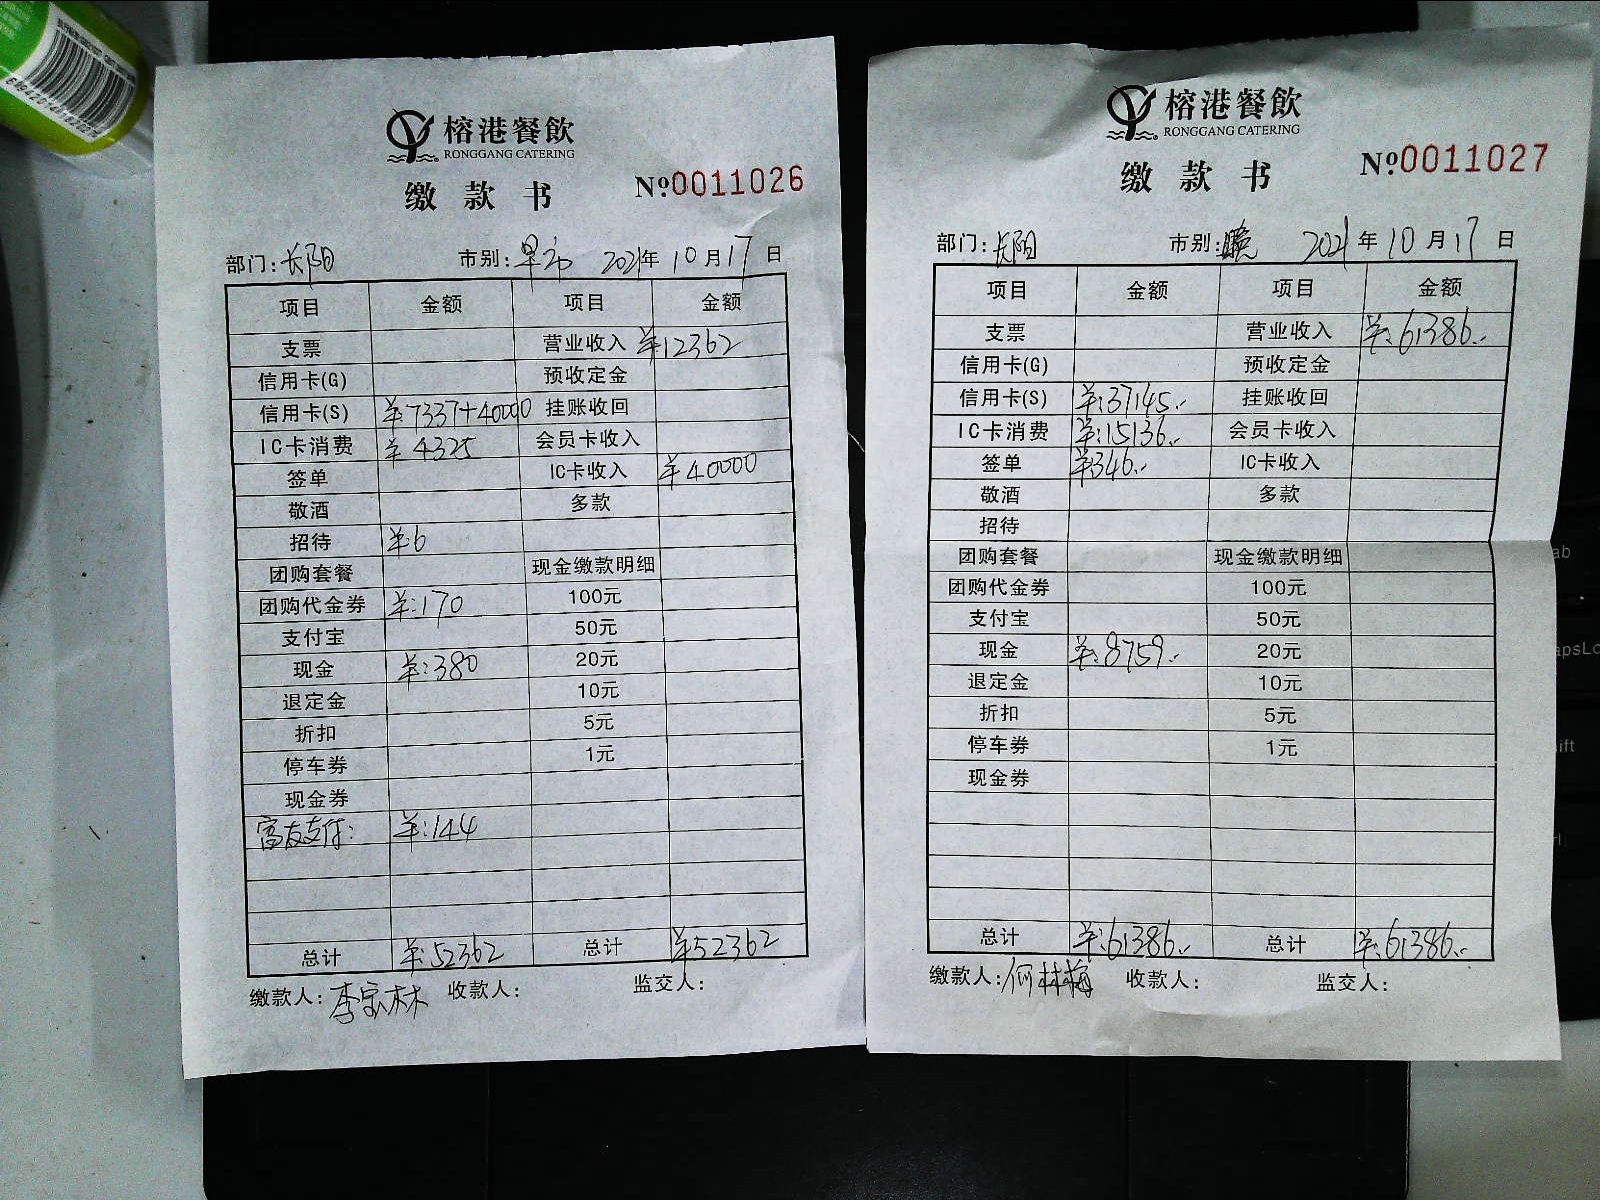 榕港餐飲
RONGGANG CATERING
缴款书 №0011026
部门:长阳 市别:早市 2021年10月17日
项目 金额 项目 金额
支票 营业收入 ¥12362
信用卡(G) 预收定金
信用卡(S) ¥7337+40000 挂账收回
IC卡消费 ¥4325 会员卡收入
签单 IC卡收入 ¥40000
敬酒 多款
招待 ¥:6
团购套餐 现金缴款明细
团购代金券 ¥:170 100元
支付宝 50元
现金 ¥:380 20元
退定金 10元
折扣 5元
停车券 1元
现金券
富友支付: ¥:144
总计 ¥:52362 总计 ¥52362
缴款人:李宗林 收款人: 监交人:
榕港餐飲
RONGGANG CATERING
缴款书 №0011027
部门:长阳 市别:晚 2021年10月17日
项目 金额 项目 金额
支票 营业收入 ¥:61386..
信用卡(G) 预收定金
信用卡(S) ¥:37145.. 挂账收回
IC卡消费 ¥:15136.. 会员卡收入
签单 ¥346.. IC卡收入
敬酒 多款
招待
团购套餐 现金缴款明细
团购代金券 100元
支付宝 50元
现金 ¥:8759.. 20元
退定金 10元
折扣 5元
停车券 1元
现金券
总计 ¥:61386.. 总计 ¥:61386..
缴款人:何林梅 收款人: 监交人: